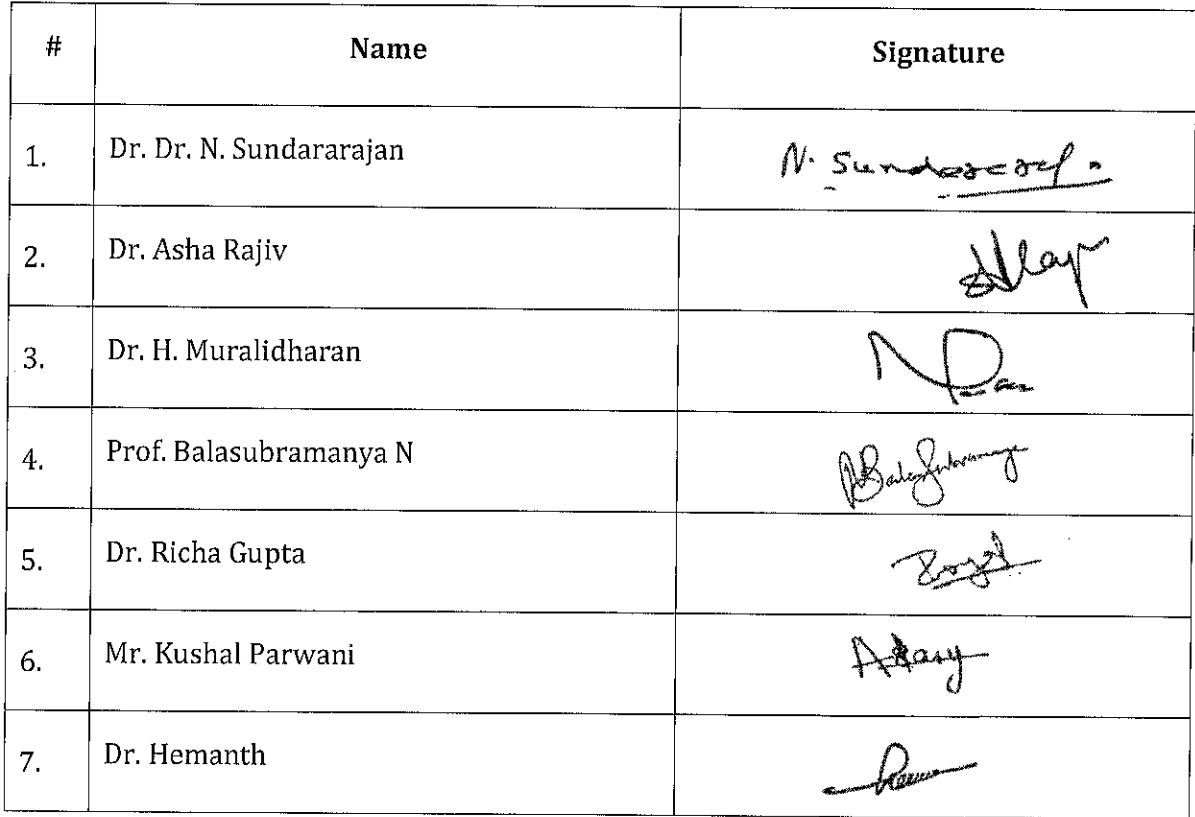 # Name Signature
1. Dr. Dr. N. Sundararajan N. Sundararaj
2. Dr. Asha Rajiv
3. Dr. H. Muralidharan
4. Prof. Balasubramanya N
5. Dr. Richa Gupta
6. Mr. Kushal Parwani
7. Dr. Hemanth